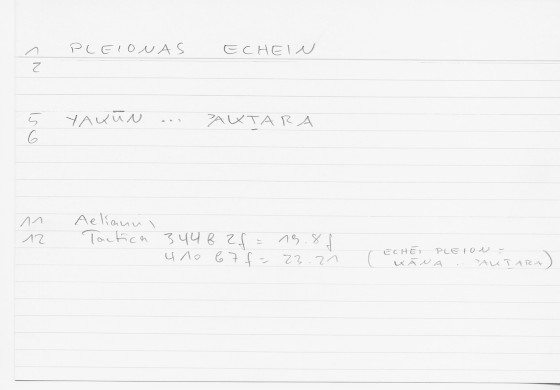 1 PLEIONAS ECHEIN
2
5 YAKŪN ... ʾAKṮARA
6
11 Aelianus
12 Tactica 344 B 2f = 19.8f
410 B7f = 22.21 (ECHEI PLEION =
KĀNA . ʾAKṮARA)